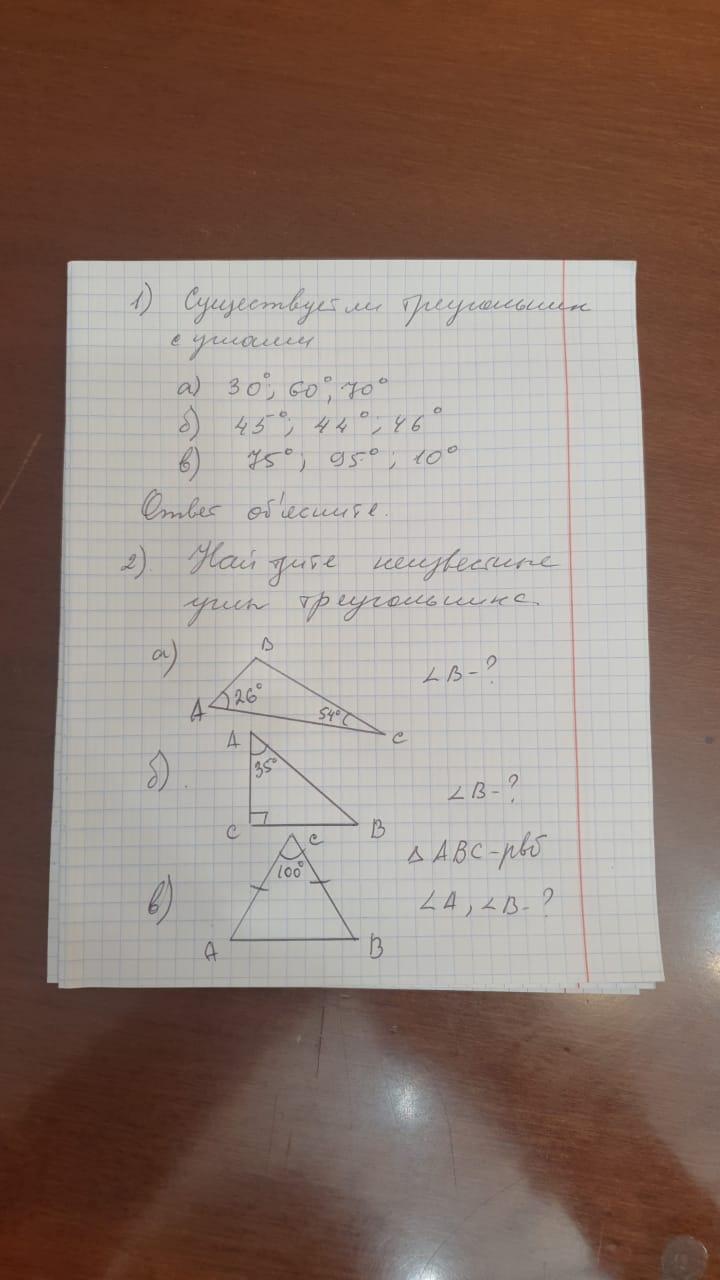 1) Существует ли треугольник
с углами
а) 30°; 60°; 70°
б) 45°; 44°; 46°
в) 75°; 95°; 10°
Ответ об'ясните.
2). Найдите неизвестные
углы треугольника.
а) B
A 26° 54° C
∠B-?
б). A
35°
C B
∠B-?
в) C
100°
A B
Δ ABC-рвб
∠A, ∠B-?